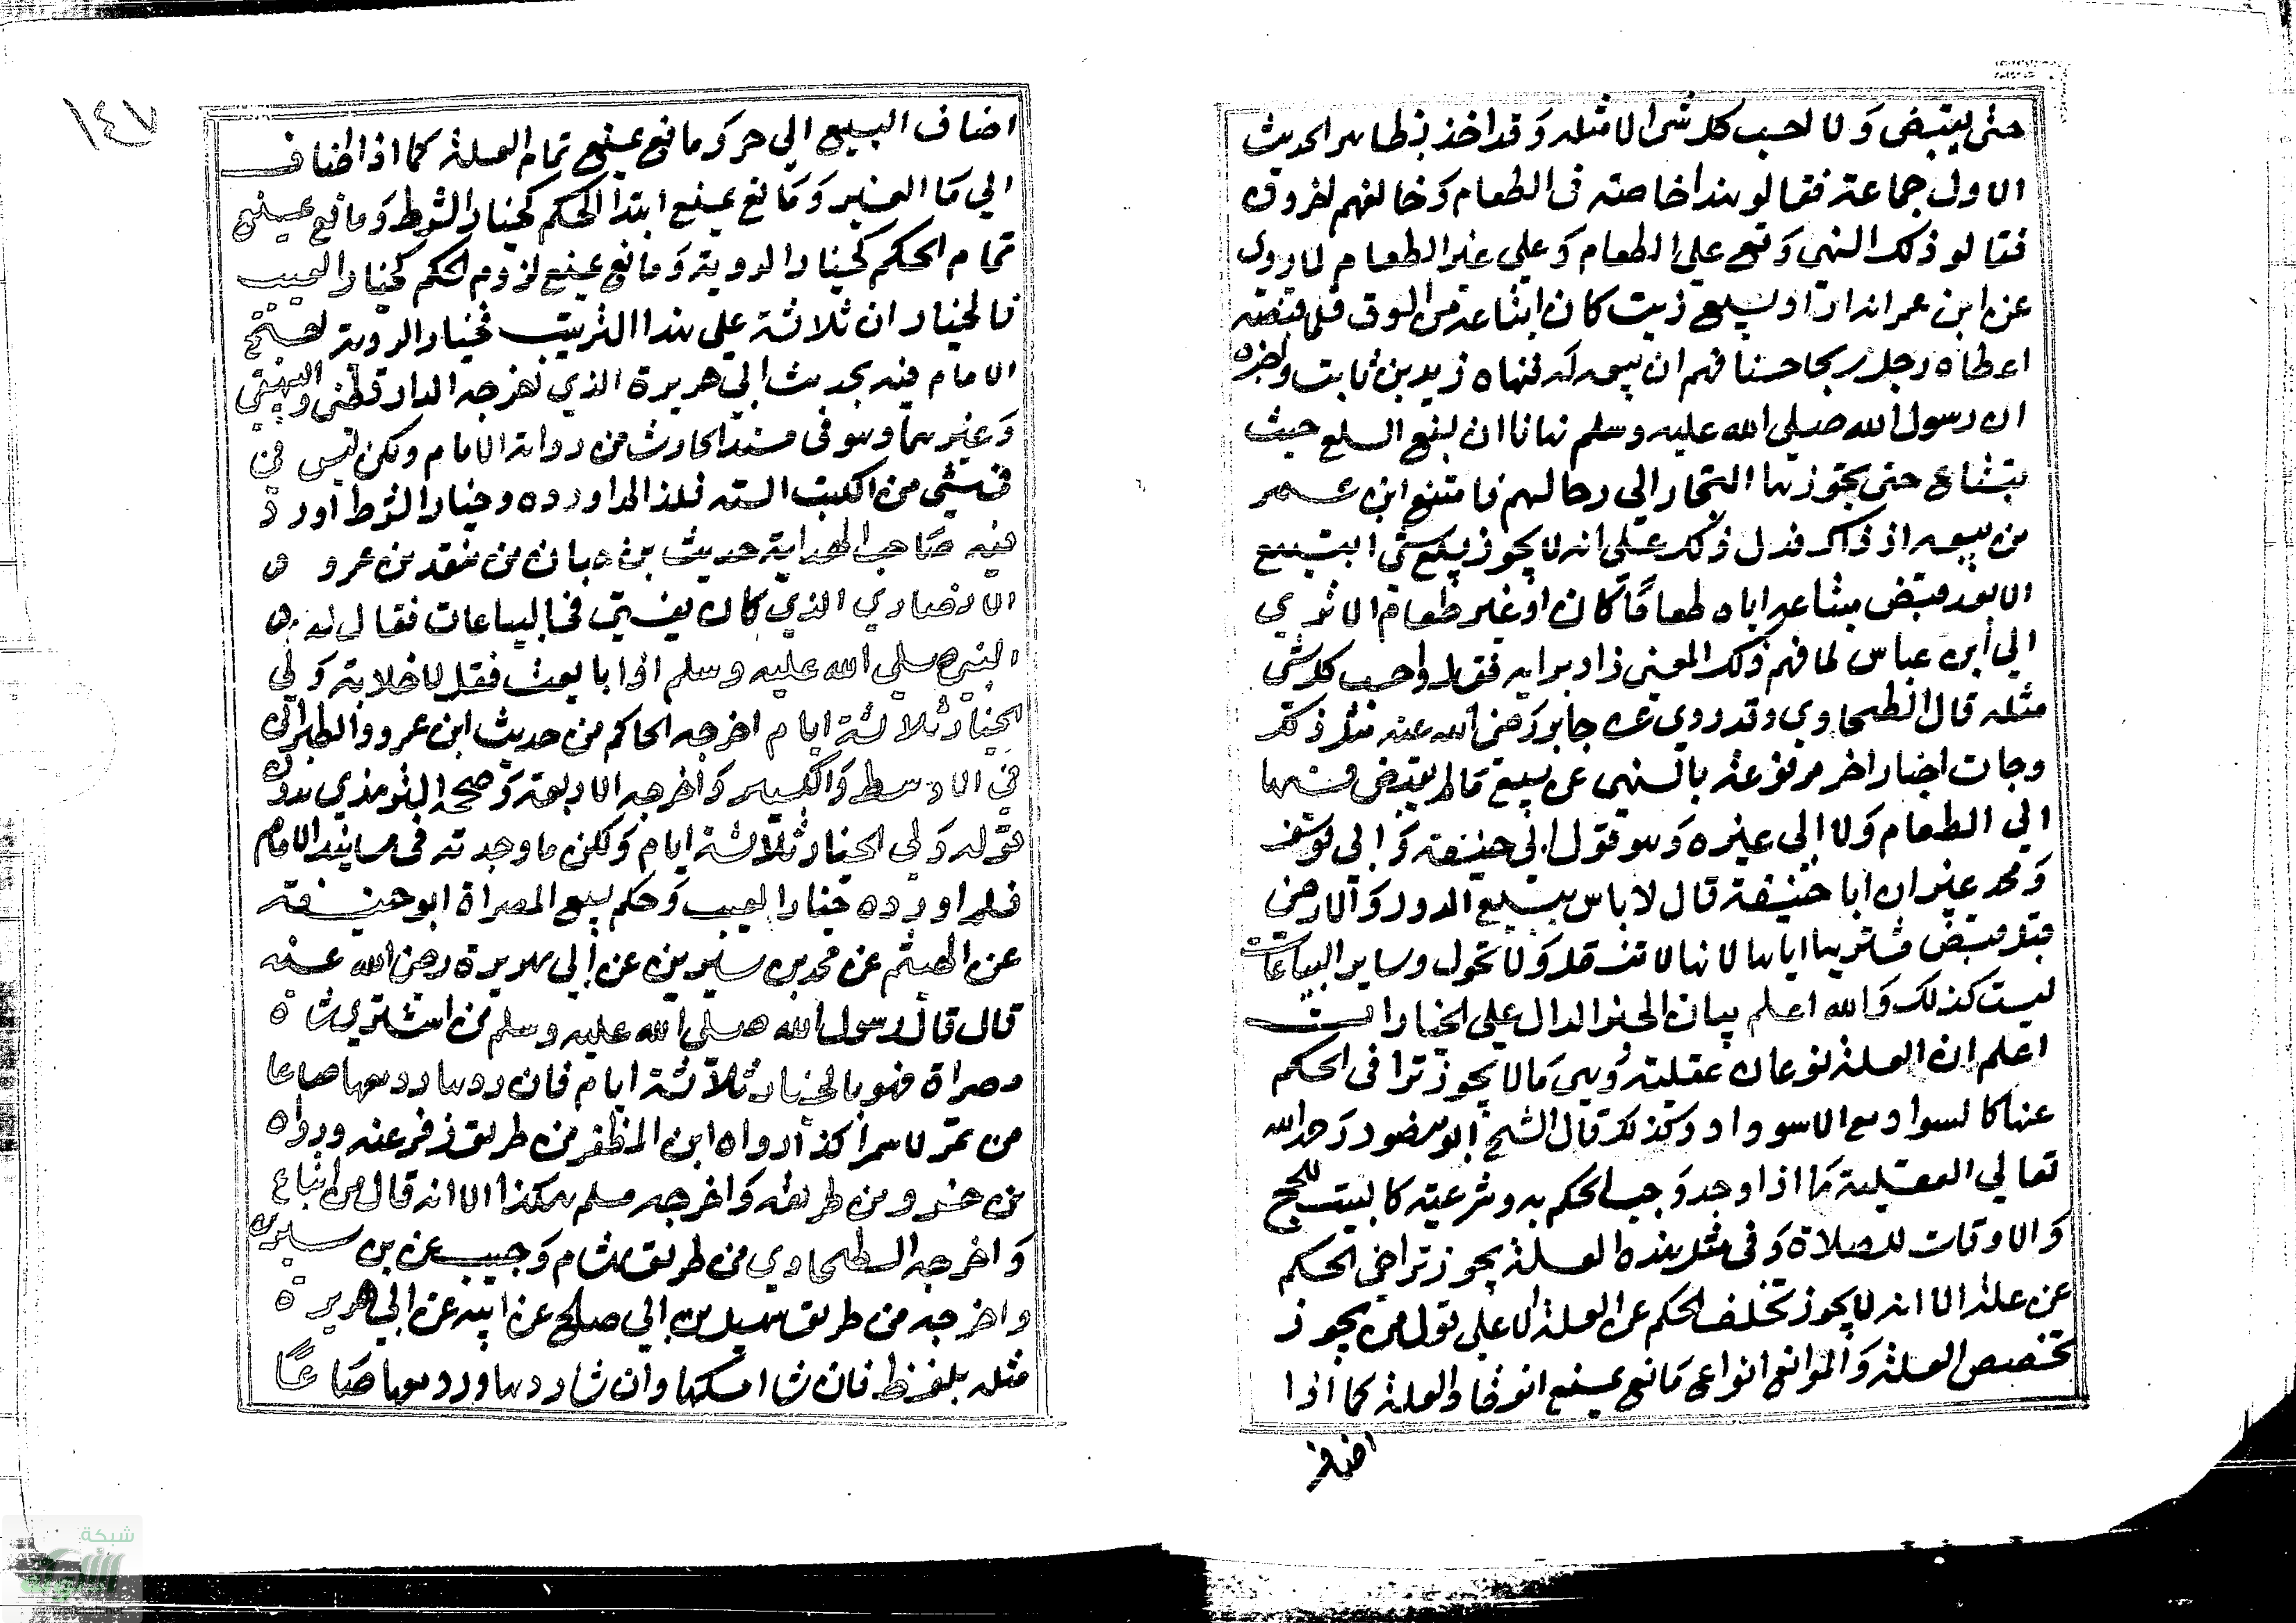 حتى يقبض ولا احسب كل شى الا مثله وقد اخذ بظاهر الحديث
الاول جماعة فقالو هذا خاصة فى الطعام وخالفهم اخرون
فقالو ذلك النهى وقع على الطعام وعلى غير الطعام لما روى
عن ابن عمر انه اراد بيع زيت كان ابتاعه من السوق فلما قبضه
اعطاه رجل ربحا حسنا فهم ان يبيعه له فنهاه زيد بن ثابت واخبره
ان رسول الله صلى الله عليه وسلم نهانا ان نبيع السلع حيث
تبتاع حتى يحوزها التجار الى رحالهم فامتنع ابن عمر
من بيعه اذ ذاك فدل ذلك على انه لا يجوز بيع شى ابتيع
الا بعد قبض مبتاعه اياه طعاما كان او غير طعام الا ترى
الى ابن عباس لما فهم ذلك المعنى زاد برايه فقال واحسب كل شى
مثله قال الطحاوى وقد روى عن جابر رضى الله عنه مثل ذلك
وجات اخبار اخر مرفوعة بالنهى عن بيع ما لم يقبض
الى الطعام ولا الى غيره وهو قول ابى حنيفة وابى يوسف
ومحمد غير ان ابا حنيفة قال لا باس ببيع الدور والارضى
قبل قبض مشتريها اياها لانها لا تنقل ولا تحول وساير البياعات
ليست كذلك والله اعلم بيان الخبر الدال على الخيارات
اعلم ان العلة نوعان عقلية وهى ما لا يجوز ترا فى الحكم
عنها كالسواد مع الاسوداد وكذلك قال الشيخ ابو منصور رحمه الله
تعالى العقلية ما اذا وجد وجب الحكم به وشرعية كالبيت للحج
والاوقات للصلاة وفى مثل هذه العلة يجوز تراخى الحكم
عن علته الا انه لا يجوز تخلف الحكم عن العلة الا على قول من يجوز
تخصيص العلة والموانع انواع مانع يمنع انعقاد العلة كما اذا
اضاف
١٤٧
اضاف البيع الى حر ومانع يمنع تمام العلة كما اذا اضاف
الى مال الغير ومانع يمنع ابتدا الحكم كخيار الشرط ومانع يمنع
تمام الحكم كخيار الروية ومانع يمنع لزوم الحكم كخيار العيب
فالخياران ثلاثة على هذا الترتيب فخيار الروية احتج
الامام فيه بحديث ابى هريرة الذى اخرجه الدارقطنى والبيهقى
وغيرهما وهو فى مسند الحارث من رواية الامام ولكن ليس فى
فى شى من الكتب الستة فلذا لم اورده وخيار الشرط اورد
فيه صاحب الهداية حديث حبان بن منقذ بن عمرو
الانصارى الذى كان يغبن فى البياعات فقال له
النبى صلى الله عليه وسلم اذا بايعت فقل لا خلابة ولى
الخيار ثلاثة ايام اخرجه الحاكم من حديث ابن عمر والطبرانى
فى الاوسط والكبير واخرجه الاربعة وصححه الترمذى بدون
قوله ولى الخيار ثلاثة ايام ولكن ما وجدته فى مسانيد الامام
فلم اورده خيار العيب وحكم بيع المصراة ابو حنيفة
عن الهيثم عن محمد بن سيرين عن ابى هريرة رضى الله عنه
قال قال رسول الله صلى الله عليه وسلم من اشترى شاة
مصراة فهو بالخيار ثلاثة ايام فان ردها رد معها صاعا
من تمر لا سمرا كذا رواه ابن المظفر من طريق زفر عنه ورواه
بن خسرو من طريقه واخرجه مسلم هكذا الا انه قال من ابتاع
واخرجه الطحاوى من طريق هشام وحبيب عن بن سيرين
واخرجه من طريق سهيل بن ابى صالح عن ابيه عن ابى هريرة
مثله بلفظ فان شا امسكها وان شا ردها ورد معها صاعًا